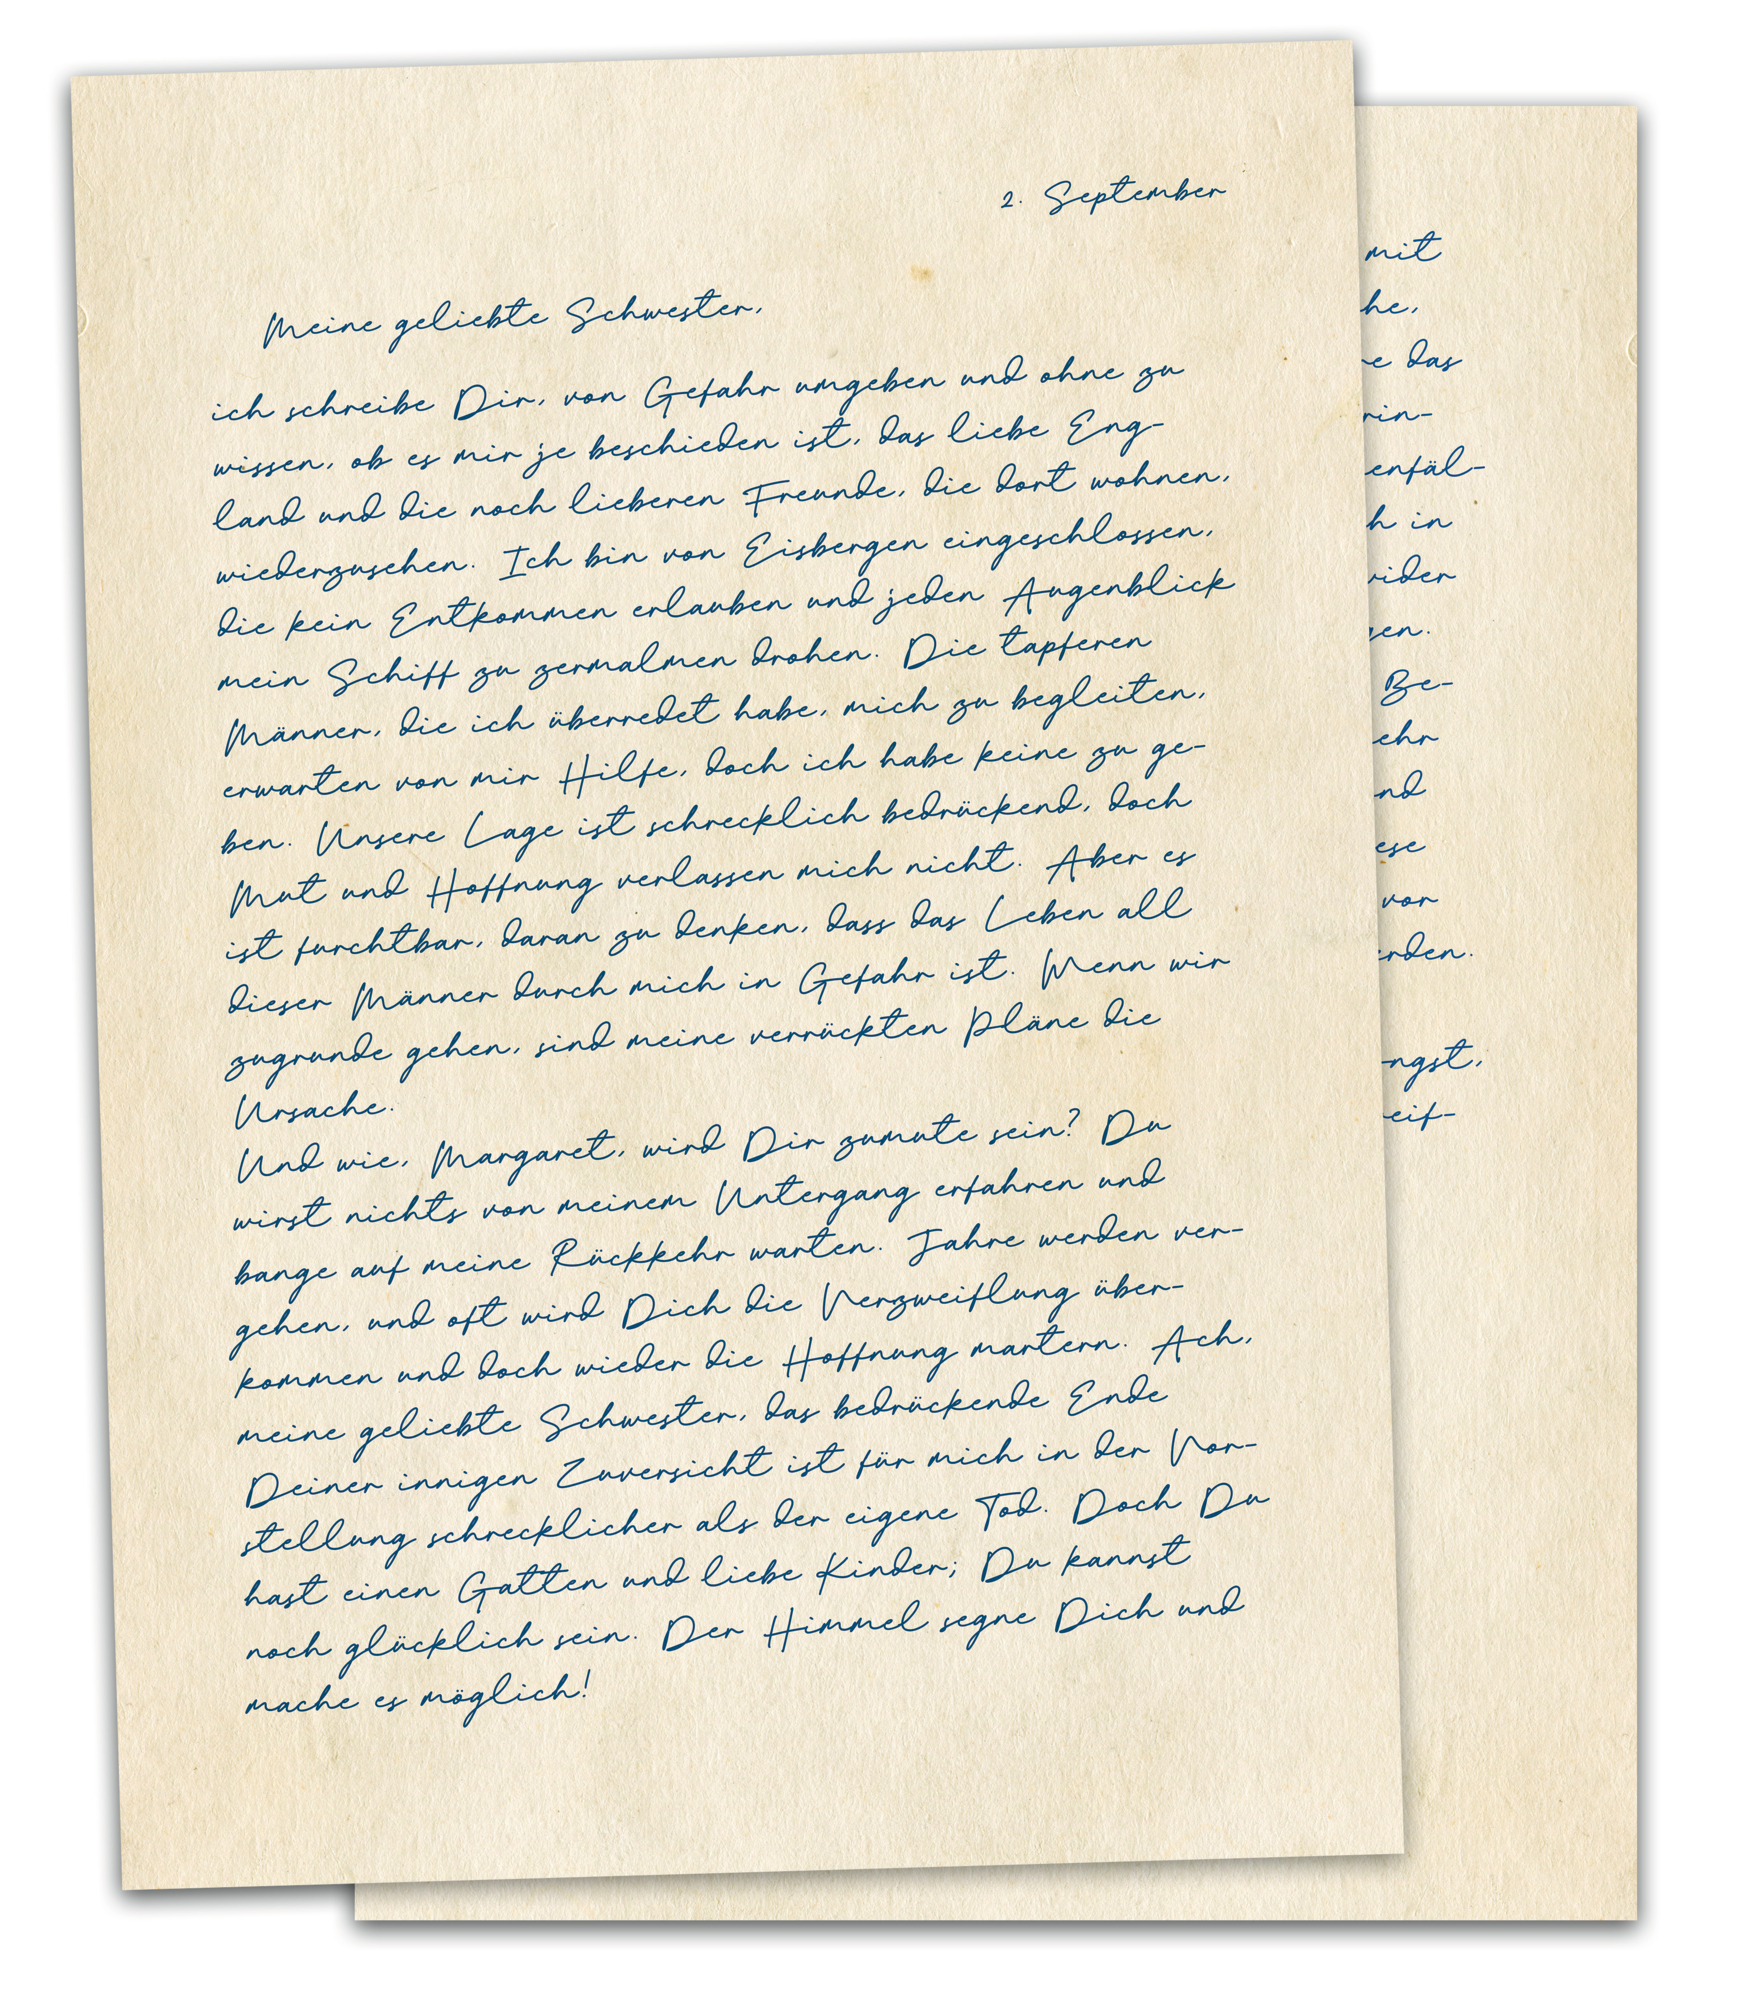 2. September
Meine geliebte Schwester,
ich schreibe Dir, von Gefahr umgeben und ohne zu
wissen, ob es mir je beschieden ist, das liebe Eng-
land und die noch lieberen Freunde, die dort wohnen,
wiederzusehen. Ich bin von Eisbergen eingeschlossen,
die kein Entkommen erlauben und jeden Augenblick
mein Schiff zu zermalmen drohen. Die tapferen
Männer, die ich überredet habe, mich zu begleiten,
erwarten von mir Hilfe, doch ich habe keine zu ge-
ben. Unsere Lage ist schrecklich bedrückend, doch
Mut und Hoffnung verlassen mich nicht. Aber es
ist furchtbar, daran zu denken, dass das Leben all
dieser Männer durch mich in Gefahr ist. Wenn wir
zugrunde gehen, sind meine verrückten Pläne die
Ursache.
Und wie, Margaret, wird Dir zumute sein? Du
wirst nichts von meinem Untergang erfahren und
bange auf meine Rückkehr warten. Jahre werden ver-
gehen, und oft wird Dich die Verzweiflung über-
kommen und doch wieder die Hoffnung martern. Ach,
meine geliebte Schwester, das bedrückende Ende
Deiner innigen Zuversicht ist für mich in der Vor-
stellung schrecklicher als der eigene Tod. Doch Du
hast einen Gatten und liebe Kinder; Du kannst
noch glücklich sein. Der Himmel segne Dich und
mache es möglich!
mit
he,
e das
rin-
enfäl-
h in
vider
gen.
Be-
ehr
nd
ese
vor
erden.
ngst,
eif-